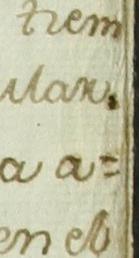 trem
ular.
a a=
en el